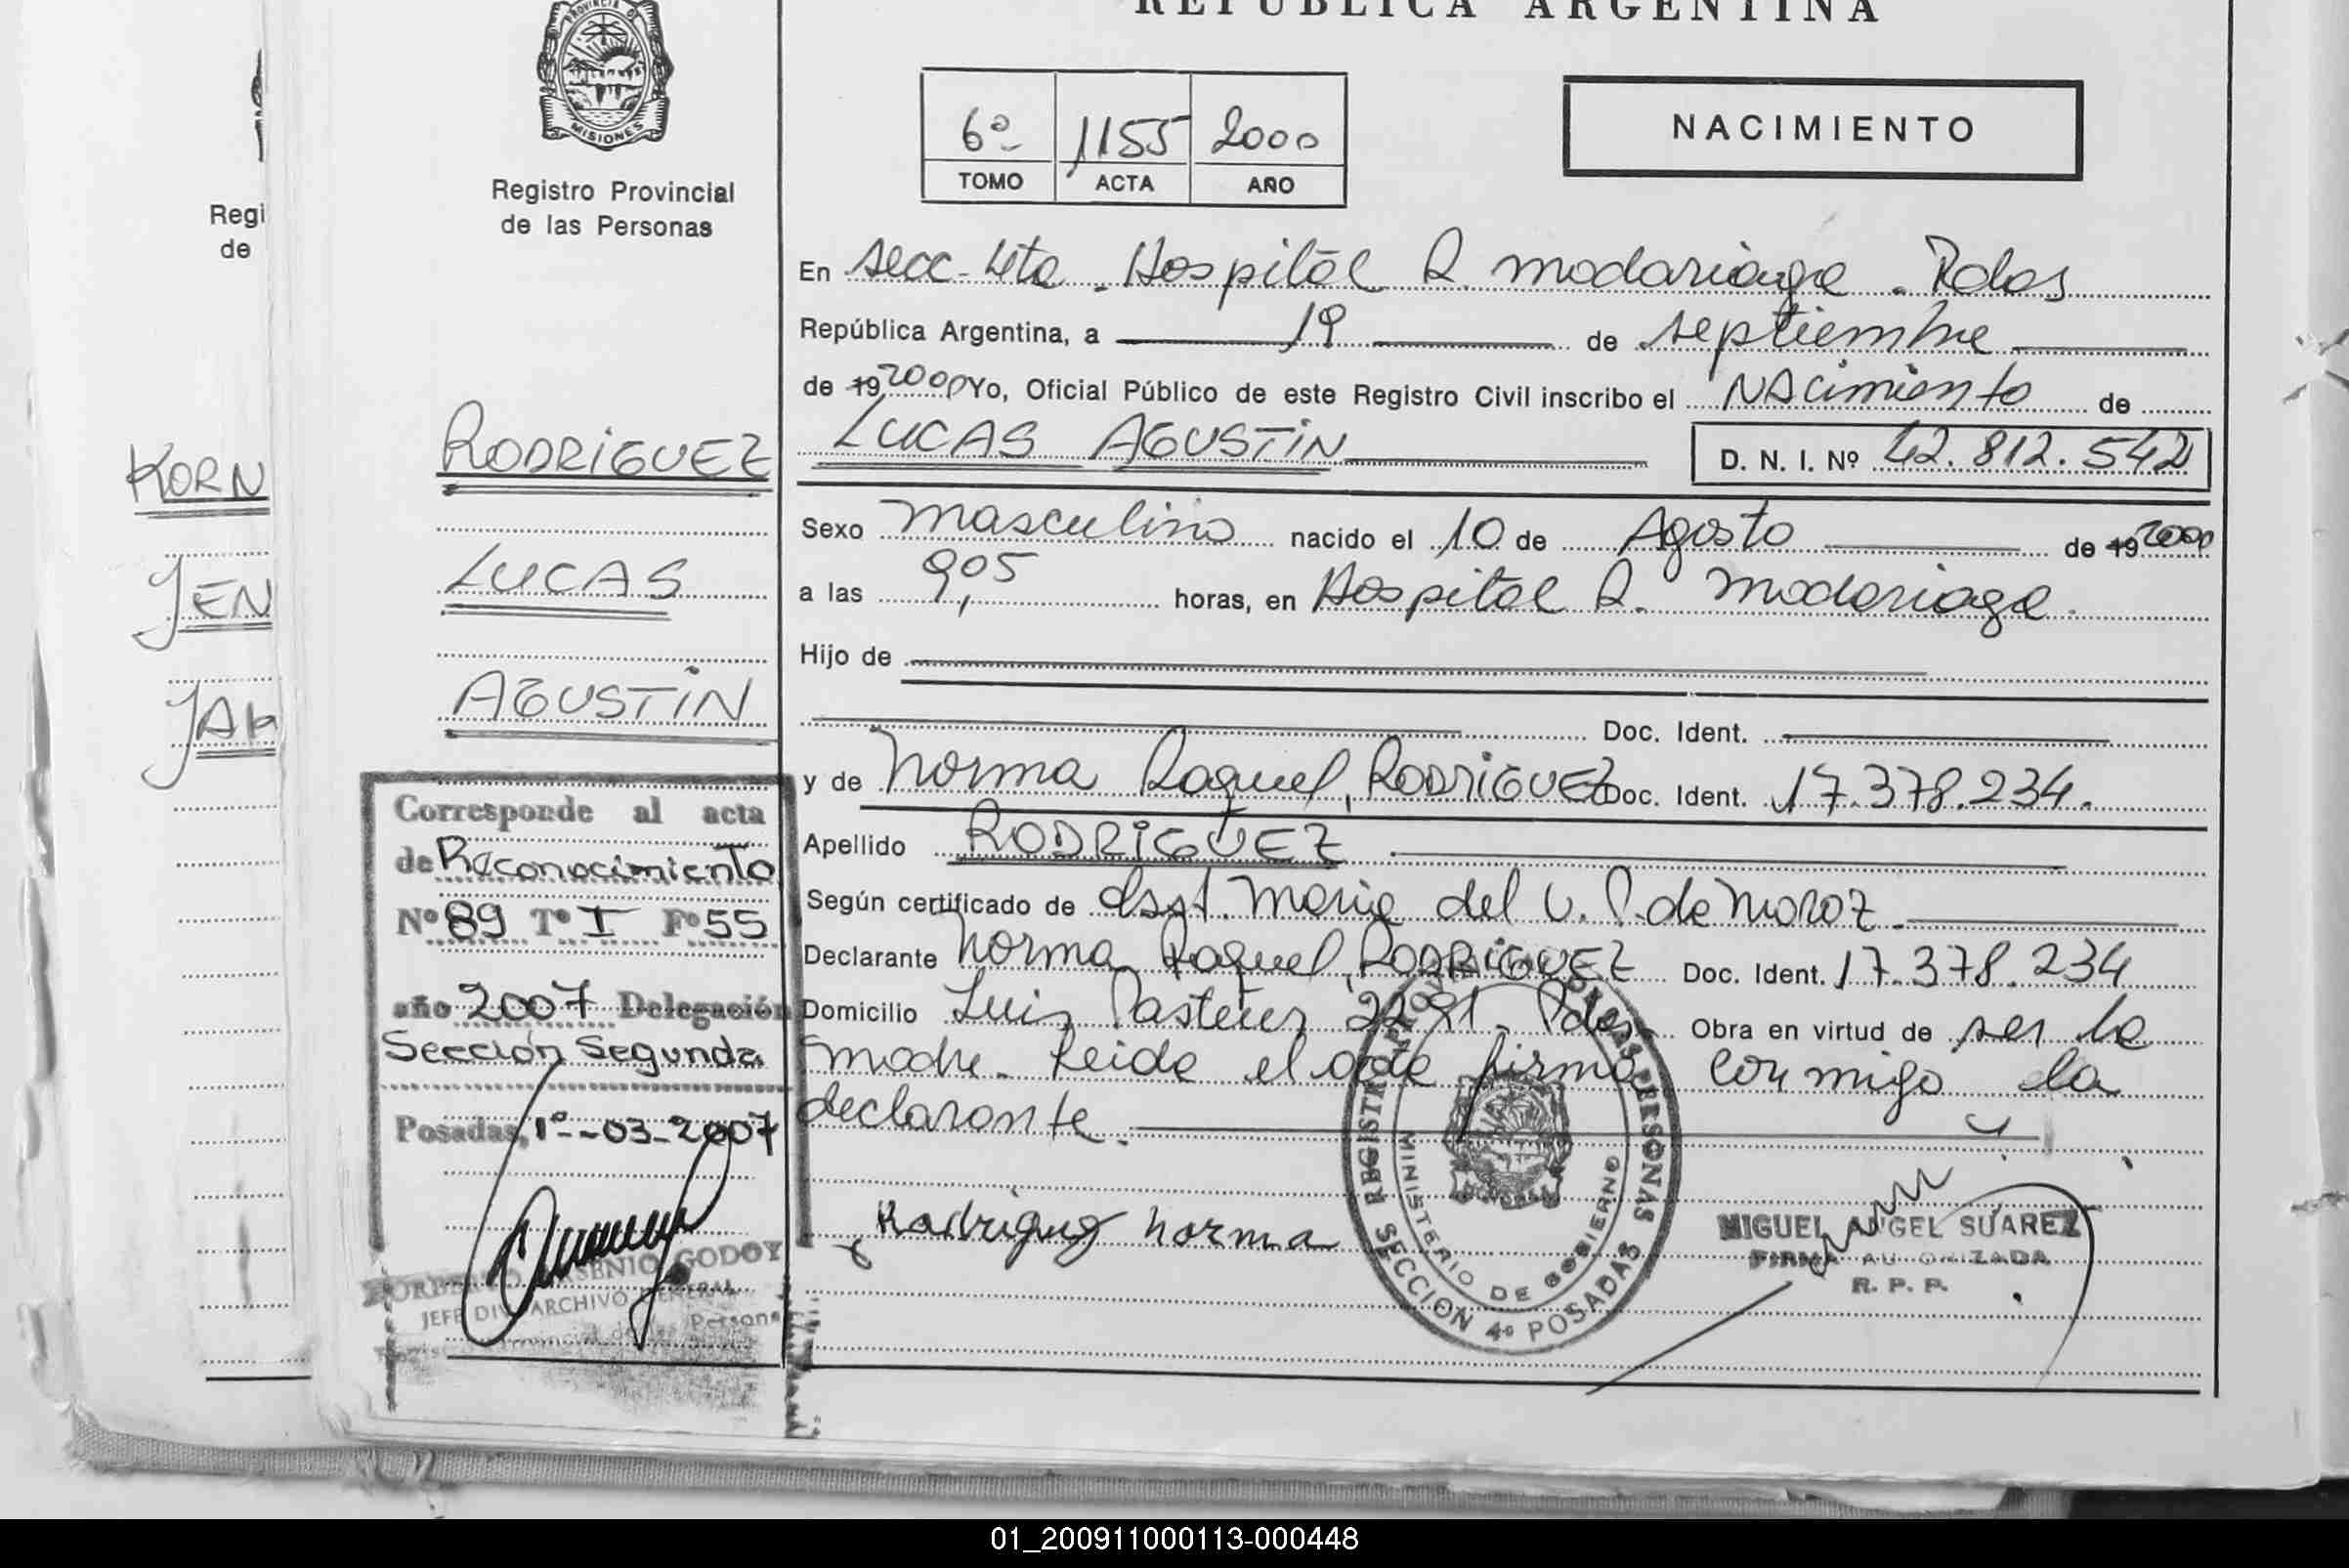 REPUBLICA ARGENTINA
PROVINCIA D
MISIONES
Registro Provincial
de las Personas
Regi
de
6º 1155 2000
TOMO ACTA AÑO
NACIMIENTO
En secc. 4ta. Hospital R. Madariaga. Pdas
República Argentina, a 19 de septiembre
de 19 2000 Yo, Oficial Público de este Registro Civil inscribo el NAcimiento de
LUCAS AGUSTIN D. N. I. Nº 42.812.542
Sexo masculino nacido el 10 de Agosto de 19 2000
a las 9,05 horas, en Hospital R. Madariaga.
Hijo de
Doc. Ident.
y de Norma Raquel, RODRIGUEZ Doc. Ident. 17.378.234.
Apellido RODRIGUEZ
Según certificado de Asst. Maria del C. P. de Moroz
Declarante Norma Raquel, RODRIGUEZ Doc. Ident. 17.378.234
Domicilio Luis Pasteur 2291. Pdas. Obra en virtud de ser la
madre. Leida el acta firma conmigo la
declarante.
Rodriguez Norma
REGISTRO PERSONAS
MINISTERIO DE GOBIERNO
SECCION 4º POSADAS
MIGUEL ANGEL SUAREZ
FIRMA AUTORIZADA
R. P. P.
RODRIGUEZ
LUCAS
AGUSTIN
Corresponde al acta
de Reconocimiento
Nº 89 Tº I Fº 55
año 2007 Delegación
Sección Segunda
Posadas, 1º-03-2007
ARSENIO GODOY
JEFE DIV. ARCHIVO GENERAL
Provincial de las Persona
KORN
JEN
01_200911000113-000448